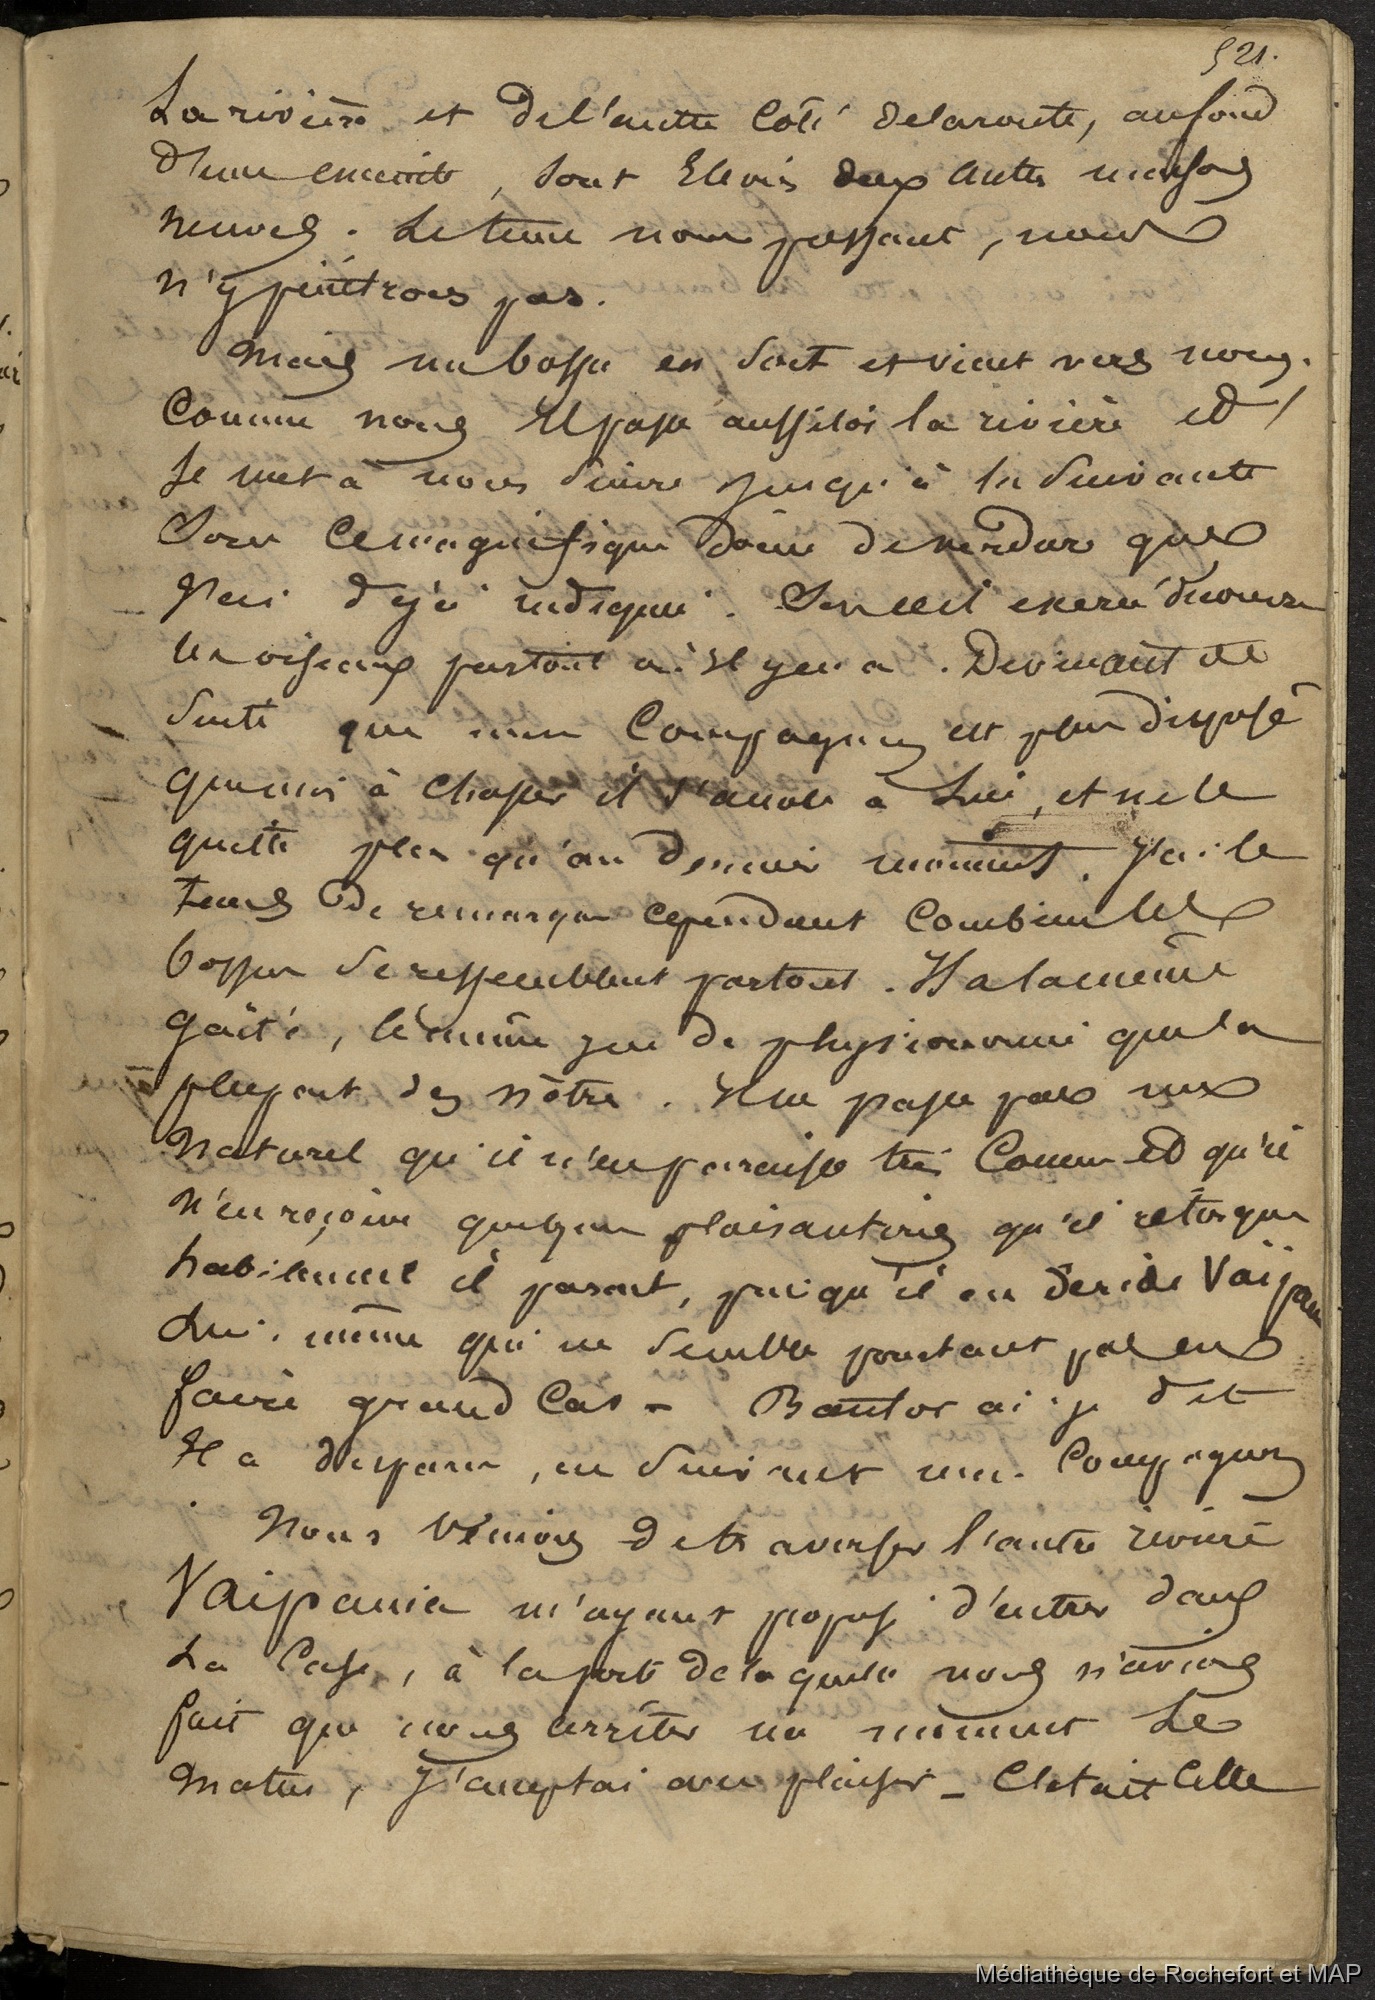 521.
La rivière et de l'autre Côté de la route, au fond
d'une enceinte, sont Elevés deux autres maisons
neuves. Le tems nous pressant, nous
n'y pénétrons pas.
Mais un bossu en sort et vient vers nous.
Comme nous Il passe aussitôt la rivière et
se met à nous suivre jusqu'à la suivante
sous ce magnifique dôme de verdure que
j'ai déjà indiqué. Son œil exercé découvre
les oiseaux partout où il y en a. Devinant de
suite que mon Compagnon est plus disposé
que moi à chasser il s'accole à Lui, et ne le
quitte plus qu'au dernier moment. J'ai le
tems de remarquer cependant Combien les
bossus se ressemblent partout. Il a la même
gaîté, le même jeu de physionomie que la
plupart des nôtres. Il ne passe pas un
naturel qu'il n'en paraisse très Connu et qu'il
n'en reçoive quelque plaisanterie qu'il rétorque
habilement il parait, puisqu'il en déride Vaïpania
Lui même qui ne semble pourtant pas en
faire grand Cas - Bientôt ai-je dit
Il a disparu, en suivant mon Compagnon
Nous venions de traverser l'autre rivière
Vaipania m'ayant proposé d'entrer dans
La Case, à la porte de laquelle nous n'avions
fait que nous arrêter un moment Le
matin, J'acceptai avec plaisir - C'était Celle
Médiathèque de Rochefort et MAP